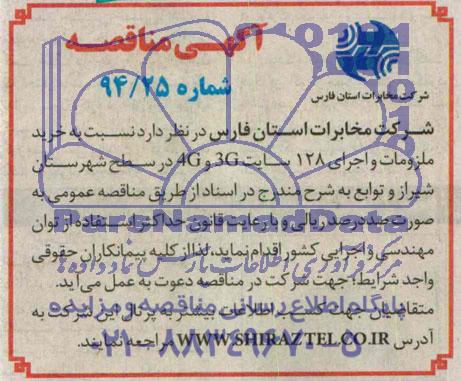 آگهی مناقصه
شماره ۹۴/۲۵
شرکت مخابرات استان فارس
شرکت مخابرات استان فارس در نظر دارد نسبت به خرید
ملزومات و اجرای ۱۲۸ سایت 3G و 4G در سطح شهرستان
شیراز و توابع به شرح مندرج در اسناد از طریق مناقصه عمومی به
صورت صد درصد ریالی و با رعایت قانون حداکثر استفاده از توان
مهندسی و اجرایی کشور اقدام نماید، لذا از کلیه پیمانکاران حقوقی
واجد شرایط؛ جهت شرکت در مناقصه دعوت به عمل می‌آید.
متقاضیان جهت کسب اطلاعات بیشتر به پرتال این شرکت به
آدرس WWW.SHIRAZTEL.CO.IR مراجعه نمایند.
پایگاه اطلاع رسانی مناقصه و مزایده
۰۲۱-۸۸۳۴۹۶۷۰-۵